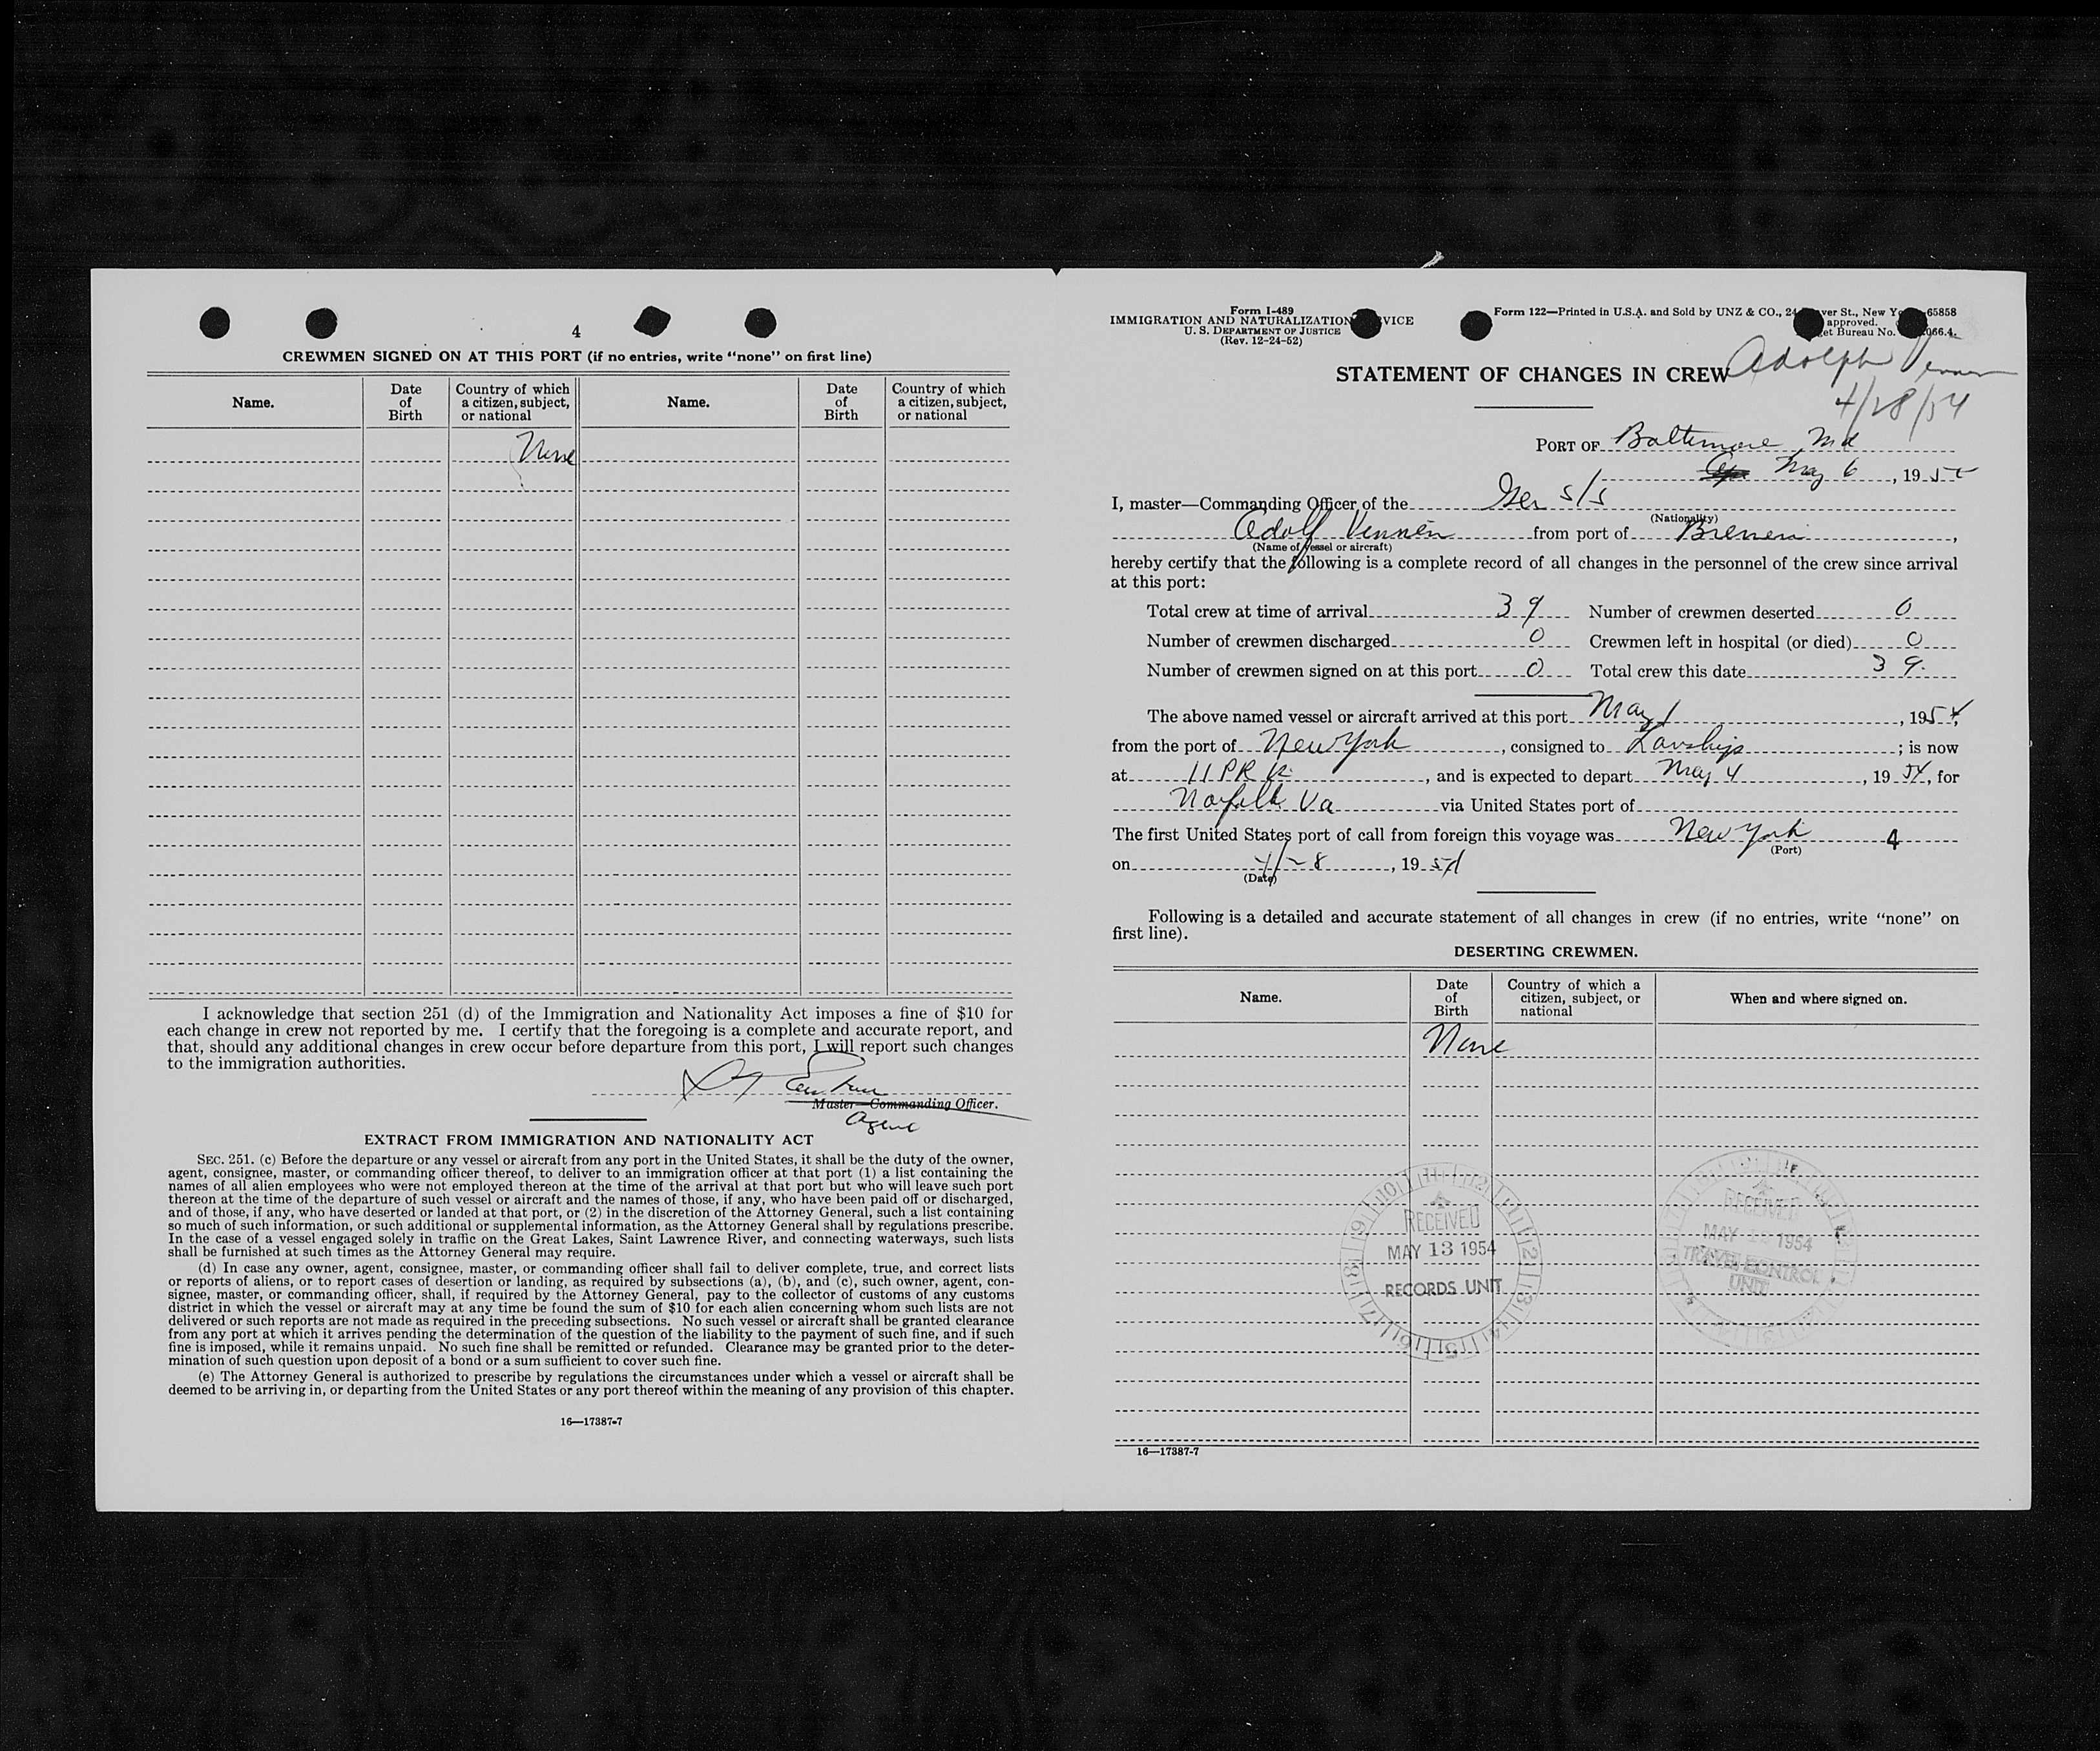 4
CREWMEN SIGNED ON AT THIS PORT (if no entries, write “none” on first line)
Name. Date of Birth Country of which a citizen, subject, or national Name. Date of Birth Country of which a citizen, subject, or national
None
I acknowledge that section 251 (d) of the Immigration and Nationality Act imposes a fine of $10 for
each change in crew not reported by me. I certify that the foregoing is a complete and accurate report, and
that, should any additional changes in crew occur before departure from this port, I will report such changes
to the immigration authorities.
Master—Commanding Officer.
Agent
EXTRACT FROM IMMIGRATION AND NATIONALITY ACT
SEC. 251. (c) Before the departure or any vessel or aircraft from any port in the United States, it shall be the duty of the owner,
agent, consignee, master, or commanding officer thereof, to deliver to an immigration officer at that port (1) a list containing the
names of all alien employees who were not employed thereon at the time of the arrival at that port but who will leave such port
thereon at the time of the departure of such vessel or aircraft and the names of those, if any, who have been paid off or discharged,
and of those, if any, who have deserted or landed at that port, or (2) in the discretion of the Attorney General, such a list containing
so much of such information, or such additional or supplemental information, as the Attorney General shall by regulations prescribe.
In the case of a vessel engaged solely in traffic on the Great Lakes, Saint Lawrence River, and connecting waterways, such lists
shall be furnished at such times as the Attorney General may require.
(d) In case any owner, agent, consignee, master, or commanding officer shall fail to deliver complete, true, and correct lists
or reports of aliens, or to report cases of desertion or landing, as required by subsections (a), (b), and (c), such owner, agent, con-
signee, master, or commanding officer, shall, if required by the Attorney General, pay to the collector of customs of any customs
district in which the vessel or aircraft may at any time be found the sum of $10 for each alien concerning whom such lists are not
delivered or such reports are not made as required in the preceding subsections. No such vessel or aircraft shall be granted clearance
from any port at which it arrives pending the determination of the question of the liability to the payment of such fine, and if such
fine is imposed, while it remains unpaid. No such fine shall be remitted or refunded. Clearance may be granted prior to the deter-
mination of such question upon deposit of a bond or a sum sufficient to cover such fine.
(e) The Attorney General is authorized to prescribe by regulations the circumstances under which a vessel or aircraft shall be
deemed to be arriving in, or departing from the United States or any port thereof within the meaning of any provision of this chapter.
16—17387-7
Form I-489
IMMIGRATION AND NATURALIZATION VICE
U. S. DEPARTMENT OF JUSTICE
(Rev. 12-24-52)
Form 122—Printed in U.S.A. and Sold by UNZ & CO., 24 ver St., New Y 65858
approved.
et Bureau No. 066.4.
Adolph Vennen
4/28/54
STATEMENT OF CHANGES IN CREW
PORT OF Baltimore Md
May 6, 1954
I, master—Commanding Officer of the Ger s/s
(Nationality)
Adolf Vennen from port of Bremen,
(Name of vessel or aircraft)
hereby certify that the following is a complete record of all changes in the personnel of the crew since arrival
at this port:
Total crew at time of arrival 39 Number of crewmen deserted 0
Number of crewmen discharged 0 Crewmen left in hospital (or died) 0
Number of crewmen signed on at this port 0 Total crew this date 39.
The above named vessel or aircraft arrived at this port May 1, 1954,
from the port of New York, consigned to Lavships; is now
at 11 PR R, and is expected to depart May 4, 1954, for
Norfolk Va via United States port of
The first United States port of call from foreign this voyage was New York 4
(Port)
on 4/28, 1954
(Date)
Following is a detailed and accurate statement of all changes in crew (if no entries, write “none” on
first line).
DESERTING CREWMEN.
Name. Date of Birth Country of which a citizen, subject, or national When and where signed on.
None
RECEIVED
MAY 13 1954
RECORDS UNIT
RECEIVED
MAY 1954
TRAVEL CONTROL
UNIT
16—17387-7